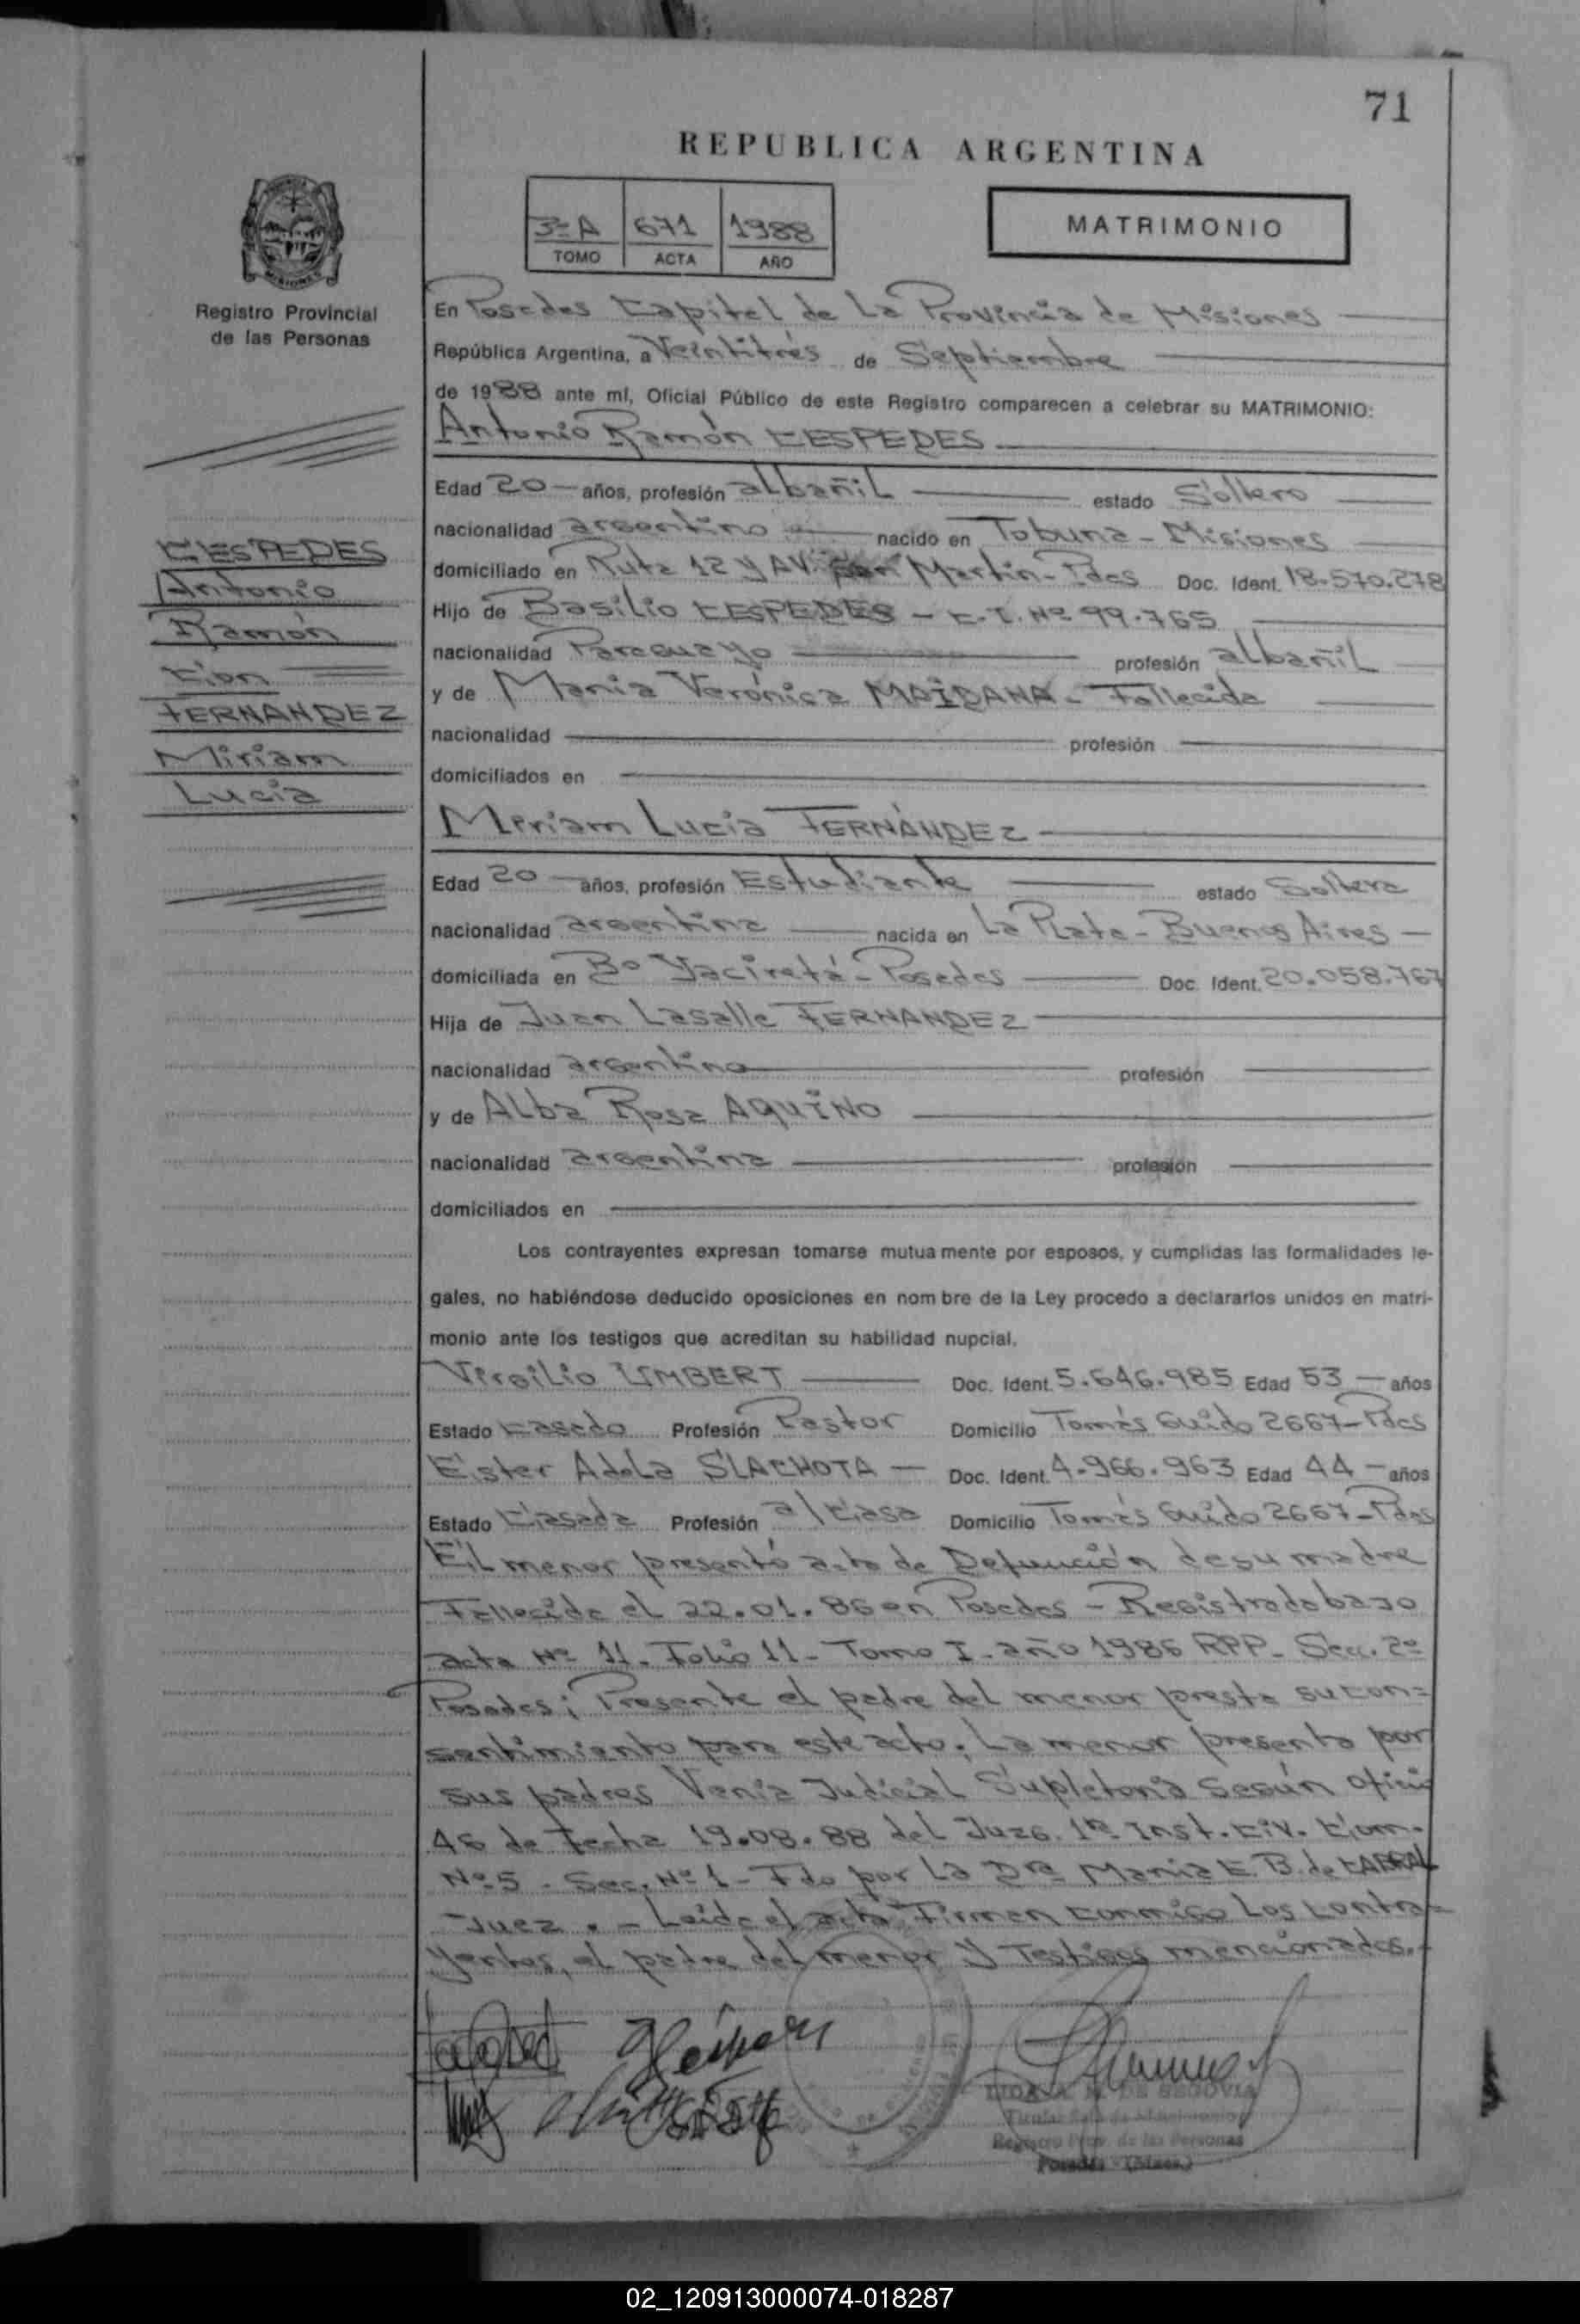 71
REPUBLICA ARGENTINA
3º A 671 1988
TOMO ACTA AÑO
MATRIMONIO
MISIONES
Registro Provincial
de las Personas
En Posadas Capital de La Provincia de Misiones
República Argentina, a Veintitrés de Septiembre
de 1988 ante mí, Oficial Público de este Registro comparecen a celebrar su MATRIMONIO:
Antonio Ramón CESPEDES
Edad 20 años, profesión albañil estado Soltero
nacionalidad argentino nacido en Tobuna - Misiones
domiciliado en Ruta 12 y AV. San Martín - Pdas Doc. Ident. 18.570.278
Hijo de Basilio CESPEDES - C.I. Nº 99.765
nacionalidad Paraguayo profesión albañil
y de María Verónica MAIDANA - Fallecida
nacionalidad profesión
domiciliados en
CESPEDES
Antonio
Ramón
Con
FERNANDEZ
Miriam
Lucía
Miriam Lucía FERNÁNDEZ
Edad 20 años, profesión Estudiante estado Soltera
nacionalidad argentina nacida en La Plata - Buenos Aires -
domiciliada en Bº Yaciretá - Posadas Doc. Ident. 20.058.767
Hija de Juan Lasalle FERNANDEZ
nacionalidad argentino profesión
y de Alba Rosa AQUINO
nacionalidad argentina profesión
domiciliados en
Los contrayentes expresan tomarse mutuamente por esposos, y cumplidas las formalidades le-
gales, no habiéndose deducido oposiciones en nombre de la Ley procedo a declararlos unidos en matri-
monio ante los testigos que acreditan su habilidad nupcial.
Virgilio IMBERT Doc. Ident. 5.646.985 Edad 53 años
Estado Casado Profesión Pastor Domicilio Tomás Guido 2667 - Pdas
Ester Adela SLACHOTA Doc. Ident. 4.966.963 Edad 44 años
Estado Casada Profesión a/Casa Domicilio Tomás Guido 2667 - Pdas
El menor presentó acta de Defunción de su madre
Fallecida el 22.01.86 en Posadas - Registrada bajo
acta Nº 11. Folio 11 - Tomo I - año 1986 RPP - Secc. 2º
Posadas; Presente el padre del menor presta su con=
sentimiento para este acto; La menor presenta por
sus padres Venia Judicial Supletoria según oficio
46 de fecha 19.08.88 del Juzg. 1ra Inst. Civ. Com.
Nº 5 - Sec. Nº 1 - Fdo por La Dra María E. B. de CABRAL
Juez . - Leída el acta Firman conmigo Los contra=
yentes, el padre del menor y Testigos mencionados.-
LIDA A. M. DE SEGOVIA
Registro Prov. de las Personas
Posadas - (Mnes.)
02_120913000074-018287